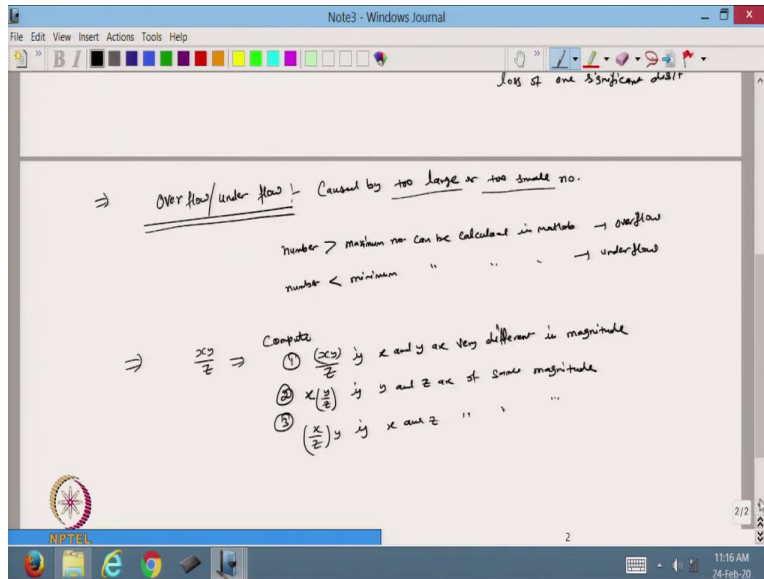 Note3 - Windows Journal
File Edit View Insert Actions Tools Help
B I
loss of one significant digit
⇒ Over flow/under flow :- Caused by too large or too small no.
number > maximum no. can be calculated in matlab → overflow
number < minimum " " " → underflow
Compute
⇒ xy/z ⇒ ① (xy)/z if x and y are very different in magnitude
② x(y/z) if y and z are of same magnitude
③ (x/z)y if x and z " " "
NPTEL
2/2
2
11:16 AM
24-Feb-20